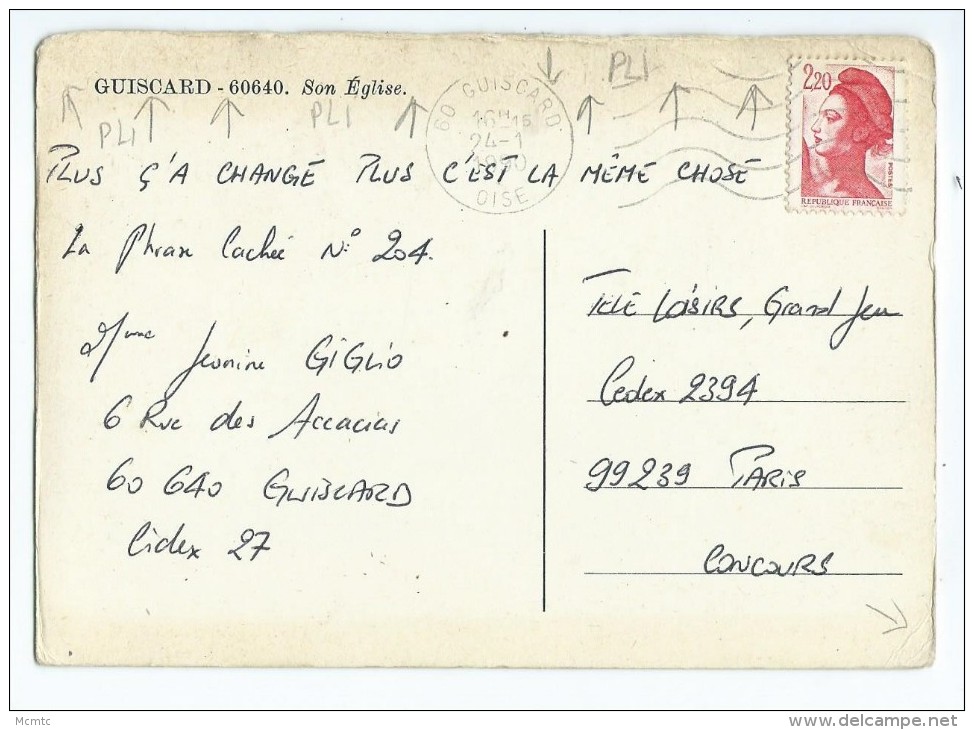 GUISCARD - 60640. Son Église.
PLI
PLI
PLI
60 GUISCARD
16H15
24-1
1990
OISE
2,20
POSTES
REPUBLIQUE FRANÇAISE
PLUS Ç'A CHANGE PLUS C'EST LA MÊME CHOSE
La Phrase Cachée N° 204.
Mme Jeanine GiGLiO
6 Rue des Accacias
60 640 GUISCARD
Cidex 27
TELE LOiSiRS, Grand Jeu
Cedex 2394
99239 PARiS
CONCOURS
Mcmtc
delcampe.net